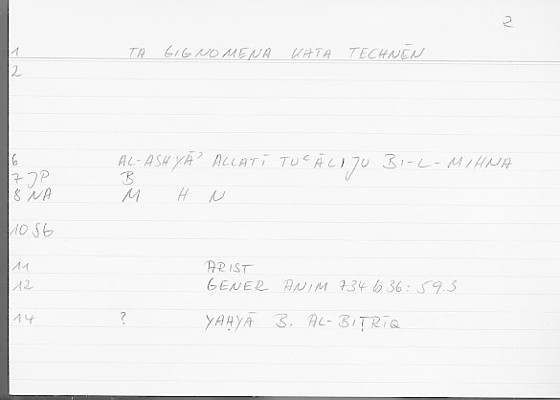 2
1 TA GIGNOMENA KATA TECHNĒN
2
6 AL-ASHYĀʾ ALLATĪ TUʿĀLIJU BI-L-MIHNA
7 JP B
8 NA M H N
10 SB
11 ARIST
12 GENER ANIM 734 b 36: 59.3
14 ? YAḤYĀ B. AL-BIṬRĪQ